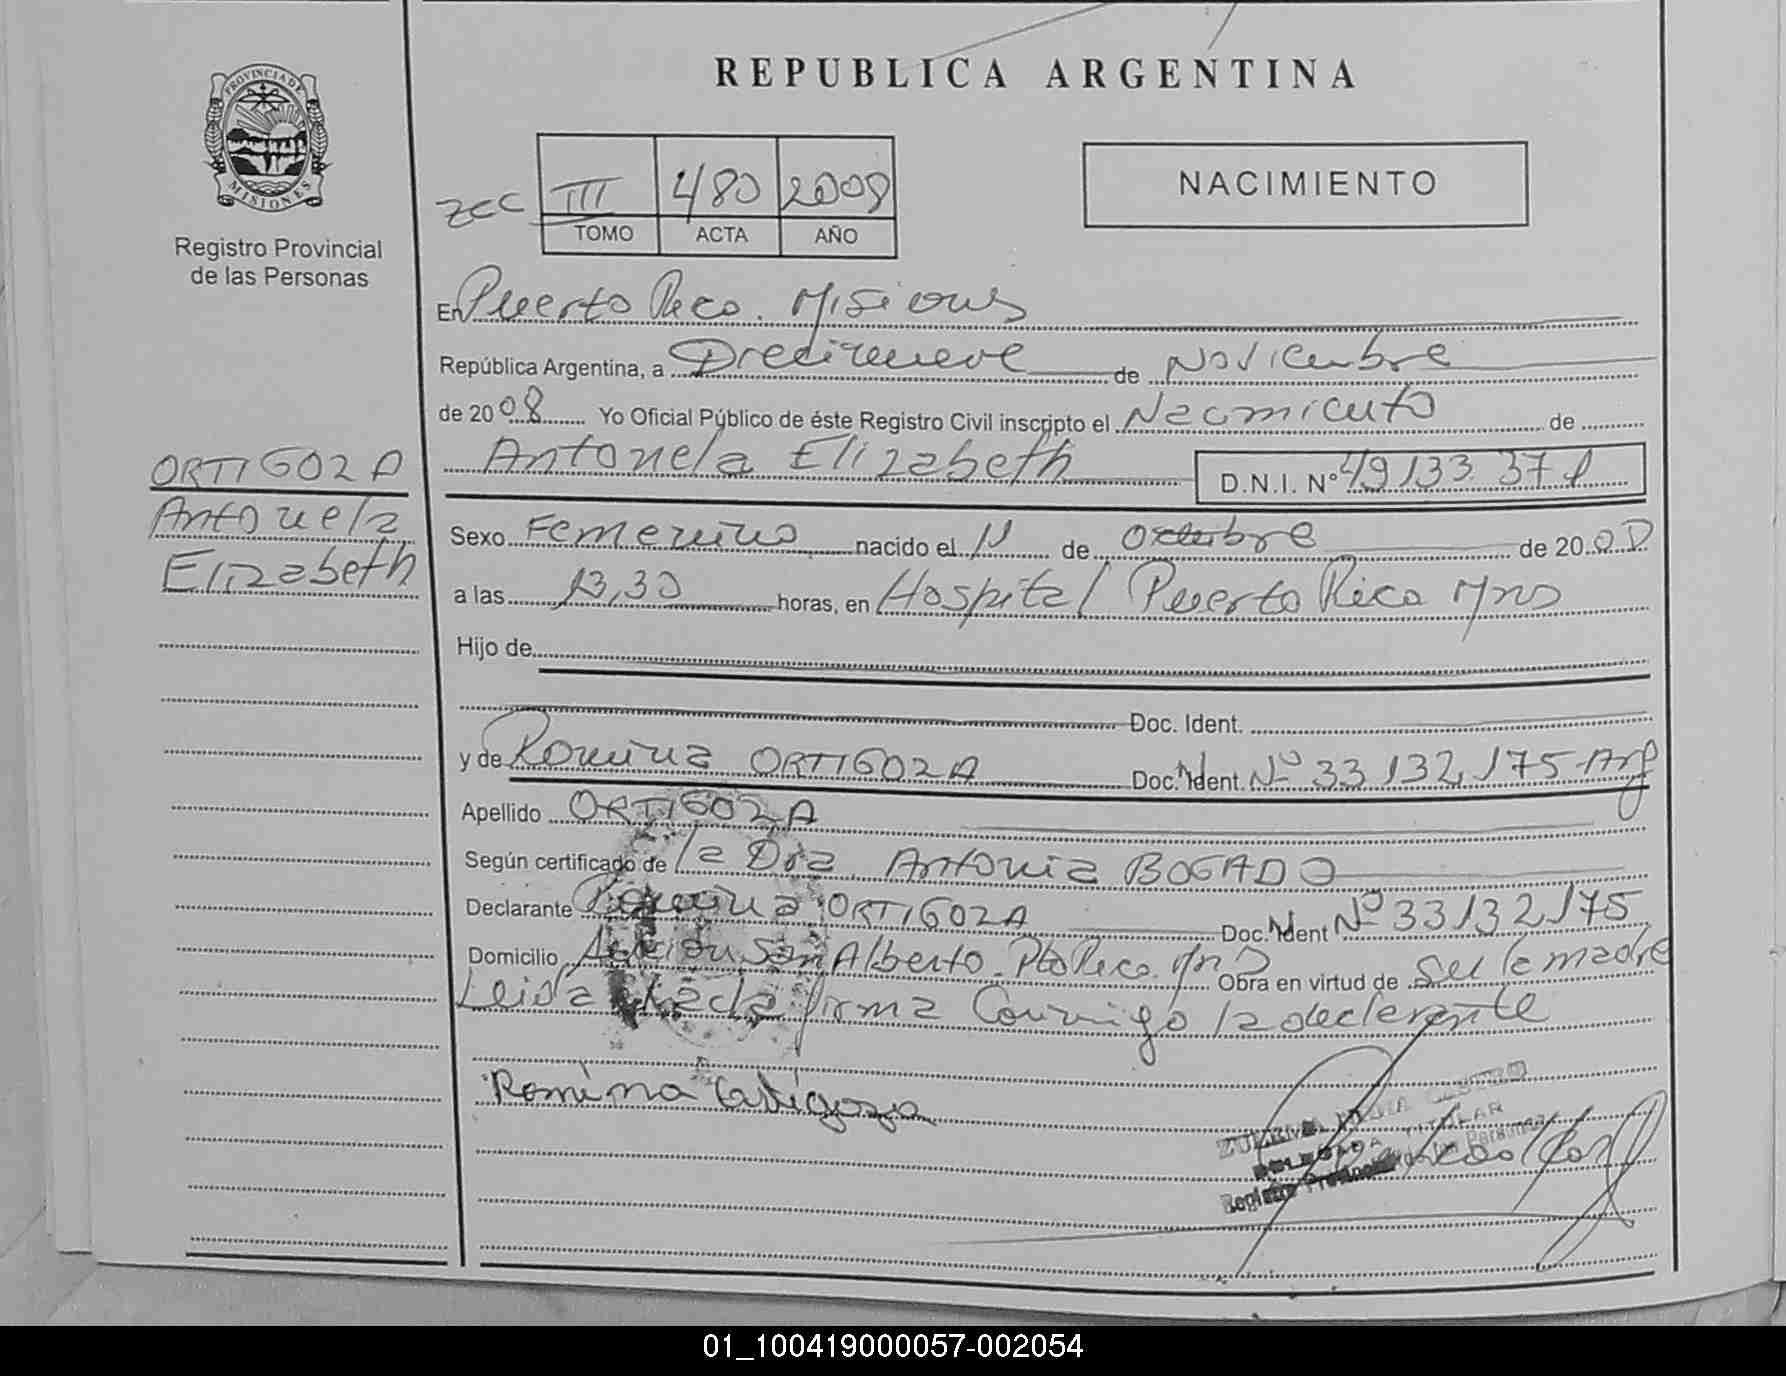 PROVINCIA DE
MISIONES
Registro Provincial
de las Personas
REPUBLICA ARGENTINA
III 480 2008
TOMO ACTA AÑO
NACIMIENTO
En Puerto Rico. Misiones
República Argentina, a Diecinueve de Noviembre
de 2008 Yo Oficial Público de éste Registro Civil inscripto el Nacimiento de
Antonela Elizabeth D.N.I. Nº 49133 371
ORTIGOZA
Antonela
Elizabeth
Sexo Femenino nacido el 11 de Octubre de 200
a las 13,30 horas, en Hospital Puerto Rico Mns
Hijo de
Doc. Ident.
y de Romina ORTIGOZA Doc. Ident. Nº 33.132.175 Arg
Apellido ORTIGOZA
Según certificado de la Dra. Antonia BOGADO
Declarante Romina ORTIGOZA Doc. Ident Nº 33132175
Domicilio San Alberto. Pto Rico. Mns Obra en virtud de ser la madre
Leida firma Conmigo la declarante
Romina Ortigoza
TITULAR
Registro
01_100419000057-002054